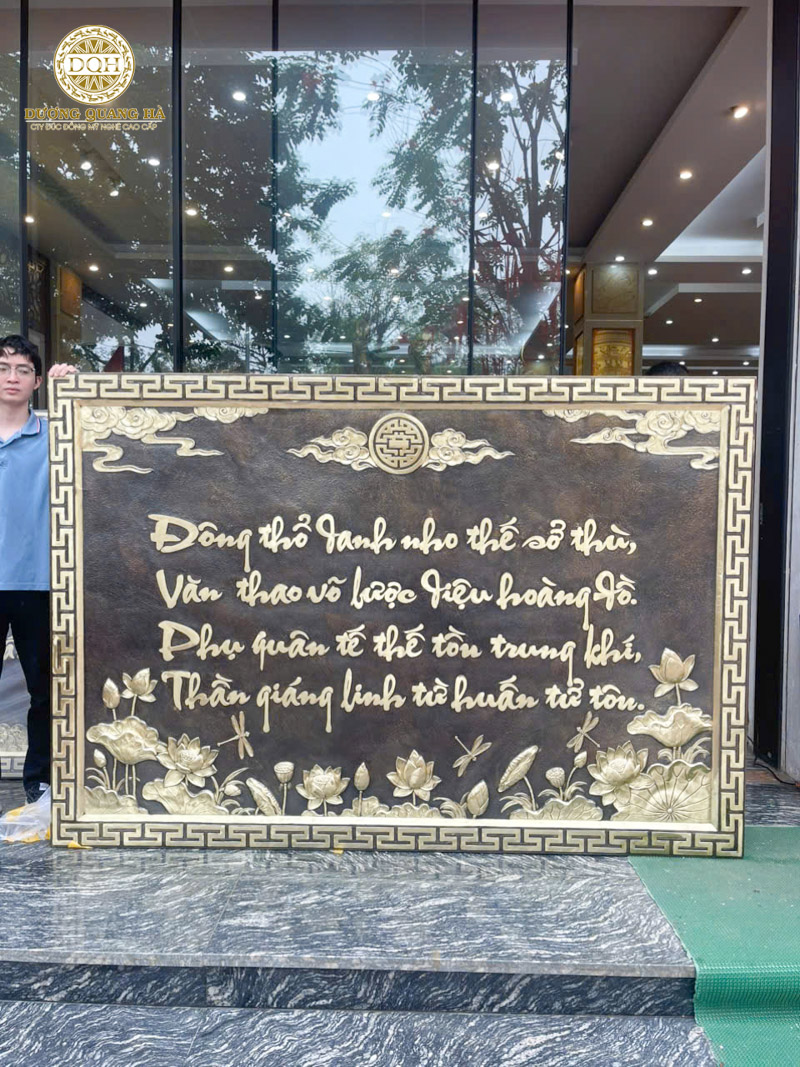 DQH
DƯƠNG QUANG HÀ
CTY ĐÚC ĐỒNG MỸ NGHỆ CAO CẤP
Đông thổ danh nho thế sở thù,
Văn thao võ lược diệu hoàng đồ.
Phụ quân tế thế tồn trung khí,
Thần giáng linh từ huấn tử tôn.